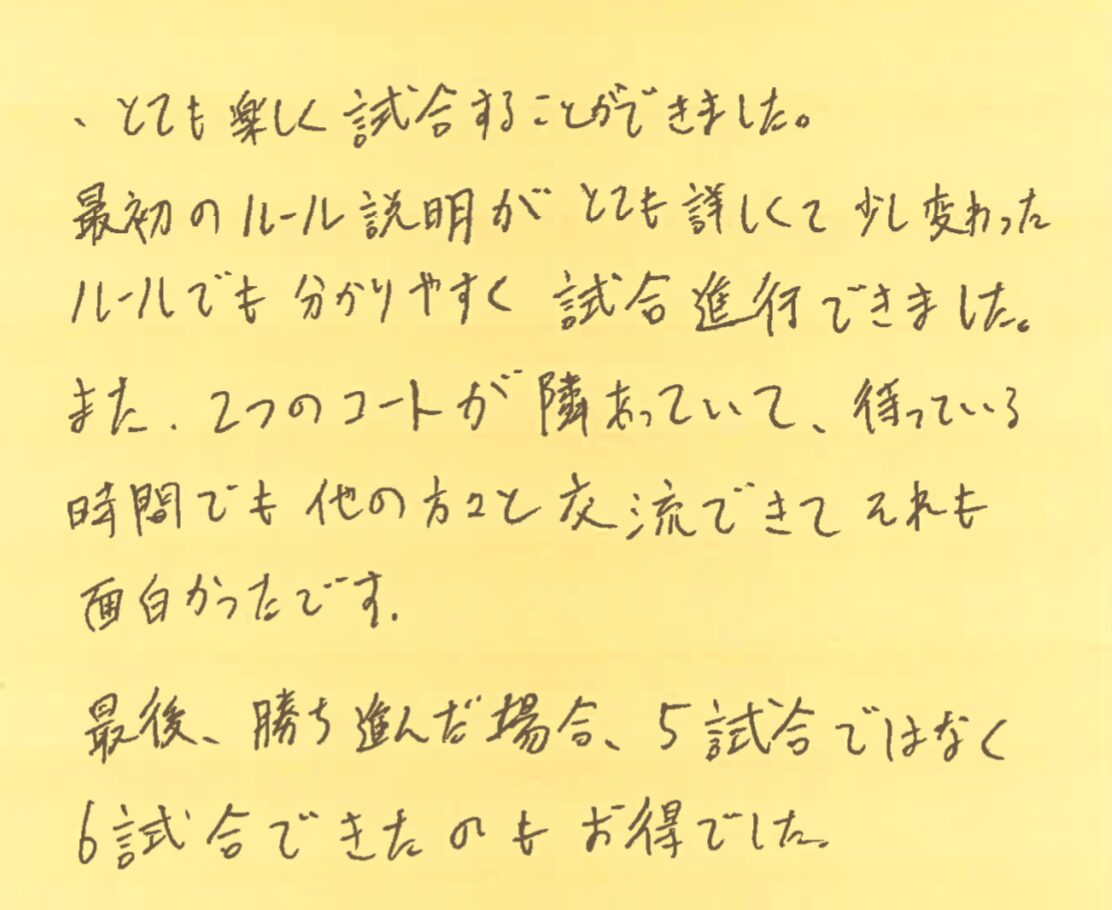 、とても楽しく試合することができました。
最初のルール説明がとても詳しくて少し変わった
ルールでも分かりやすく試合進行できました。
また、2つのコートが隣あっていて、待っている
時間でも他の方々と交流できてそれも
面白かったです.
最後、勝ち進んだ場合、5試合ではなく
6試合できたのもお得でした。